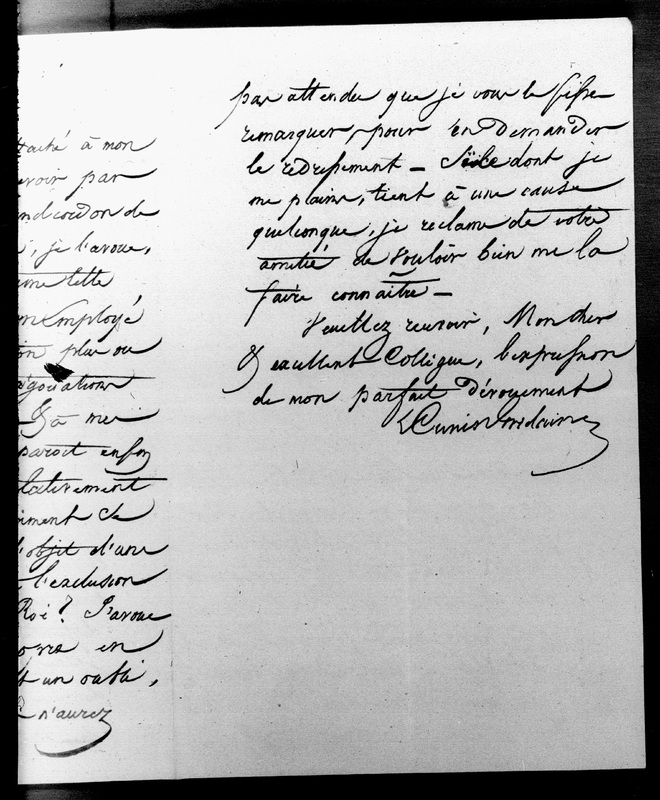 taché à mon
evoir par
nd cordon de
, je l'avoue,
ème lettre
n Employé
on plus ou
négociations
& à mes
paroit enfin
lativement
iment de
l'objet d'une
l'exclusion
Roi ? J'avoue
en
t un oubli,
n'aurez
pas attendu que je vous le fisse
remarquer, pour en demander
le redressement — Si ce dont je
me plains, tient à une cause
quelconque, je réclame de votre
amitié de vouloir bien me la
faire connaître —
Veuillez recevoir, Mon cher
& excellent Collègue, l'expression
de mon parfait dévouement
LCunin Gridaine